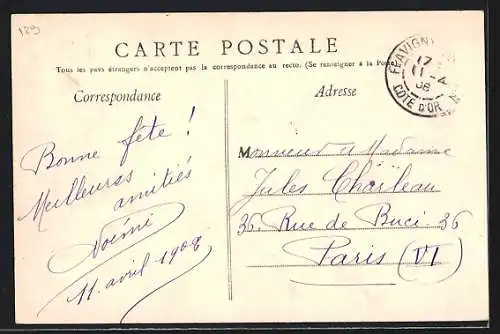 129
CARTE POSTALE
Tous les pays étrangers n'acceptent pas la correspondance au recto. (Se renseigner à la Poste
Correspondance
Adresse
FLAVIGNY
17
11 - 4
08
CÔTE D'OR
Bonne fête !
Meilleures
amitiés
Noémi
11. avril 1908
Monsieur et Madame
Jules
36. Rue de Buci. 36
Paris (VI)